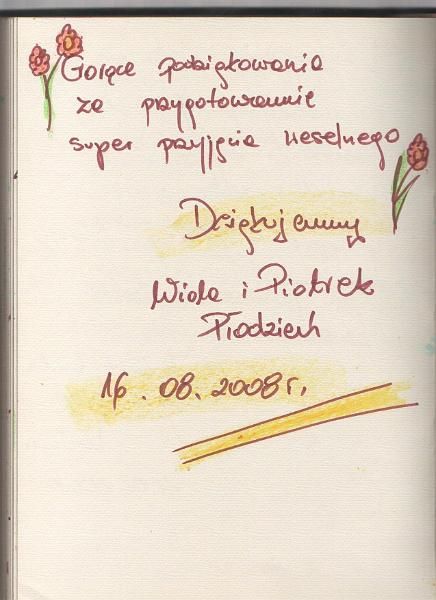 Gorące podziękowania
za przygotowanie
super przyjęcia weselnego
Dziękujemy
Wiola i Piotrek
16.08.2008 r.